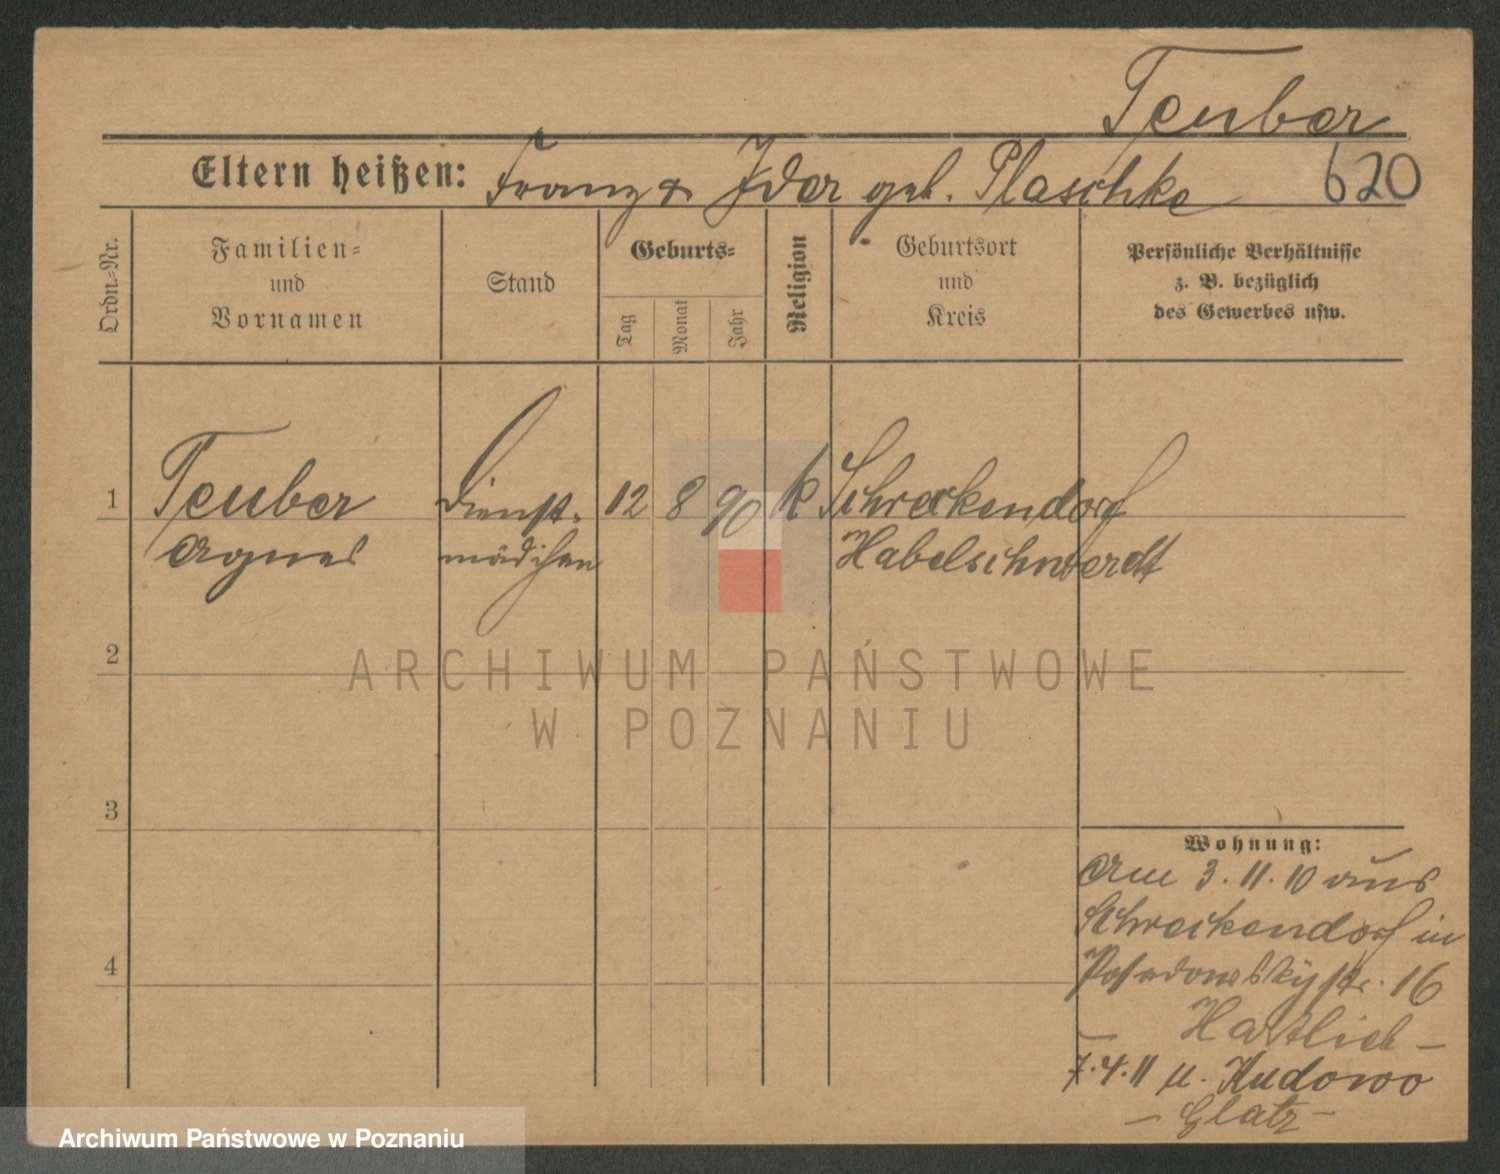 Teuber
Eltern heißen: Franz & Ida geb. Plaschke 620
Ordn.-Nr.
Familien-
und
Vornamen
Stand
Geburts-
Tag
Monat
Jahr
Religion
Geburtsort
und
Kreis
Persönliche Verhältnisse
z. B. bezüglich
des Gewerbes usw.
1 Teuber Dienst- 12 8 90 k Schreckendorf
Agnes mädchen Habelschwerdt
2
3
4
ARCHIWUM PAŃSTWOWE
W POZNANIU
Wohnung:
Am 3.11.10 aus
Schreckendorf in
Posadowskystr. 16
Hartlieb –
7.4.11 n. Kudowa
– Glatz –
Archiwum Państwowe w Poznaniu